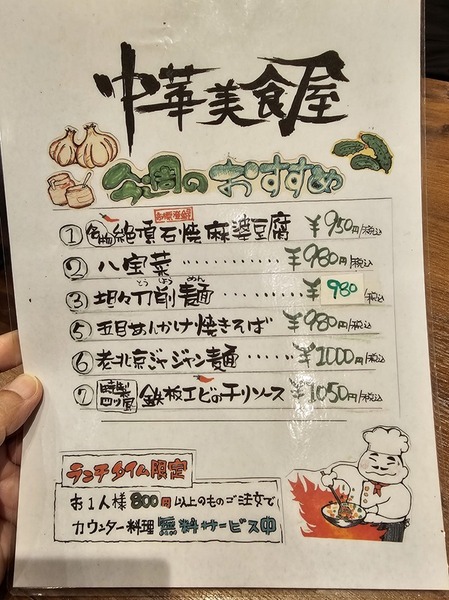 中華美食屋
今週のおすすめ
商標登録
① 名物 絶頂石焼麻婆豆腐 ¥950円/税込
② 八宝菜 ………… ¥980円/税込
とうしょうめん
③ 坦々刀削麺 …… ¥980/税込
⑤ 五目あんかけ焼きそば ¥980円/税込
⑥ 老北京ジャジャン麺 …… ¥1000円/税込
⑦ 特製四ツ屋 鉄板エビのチリソース ¥1050円/税込
ランチタイム限定
お1人様800円以上のものご注文で
カウンター料理 無料サービス中